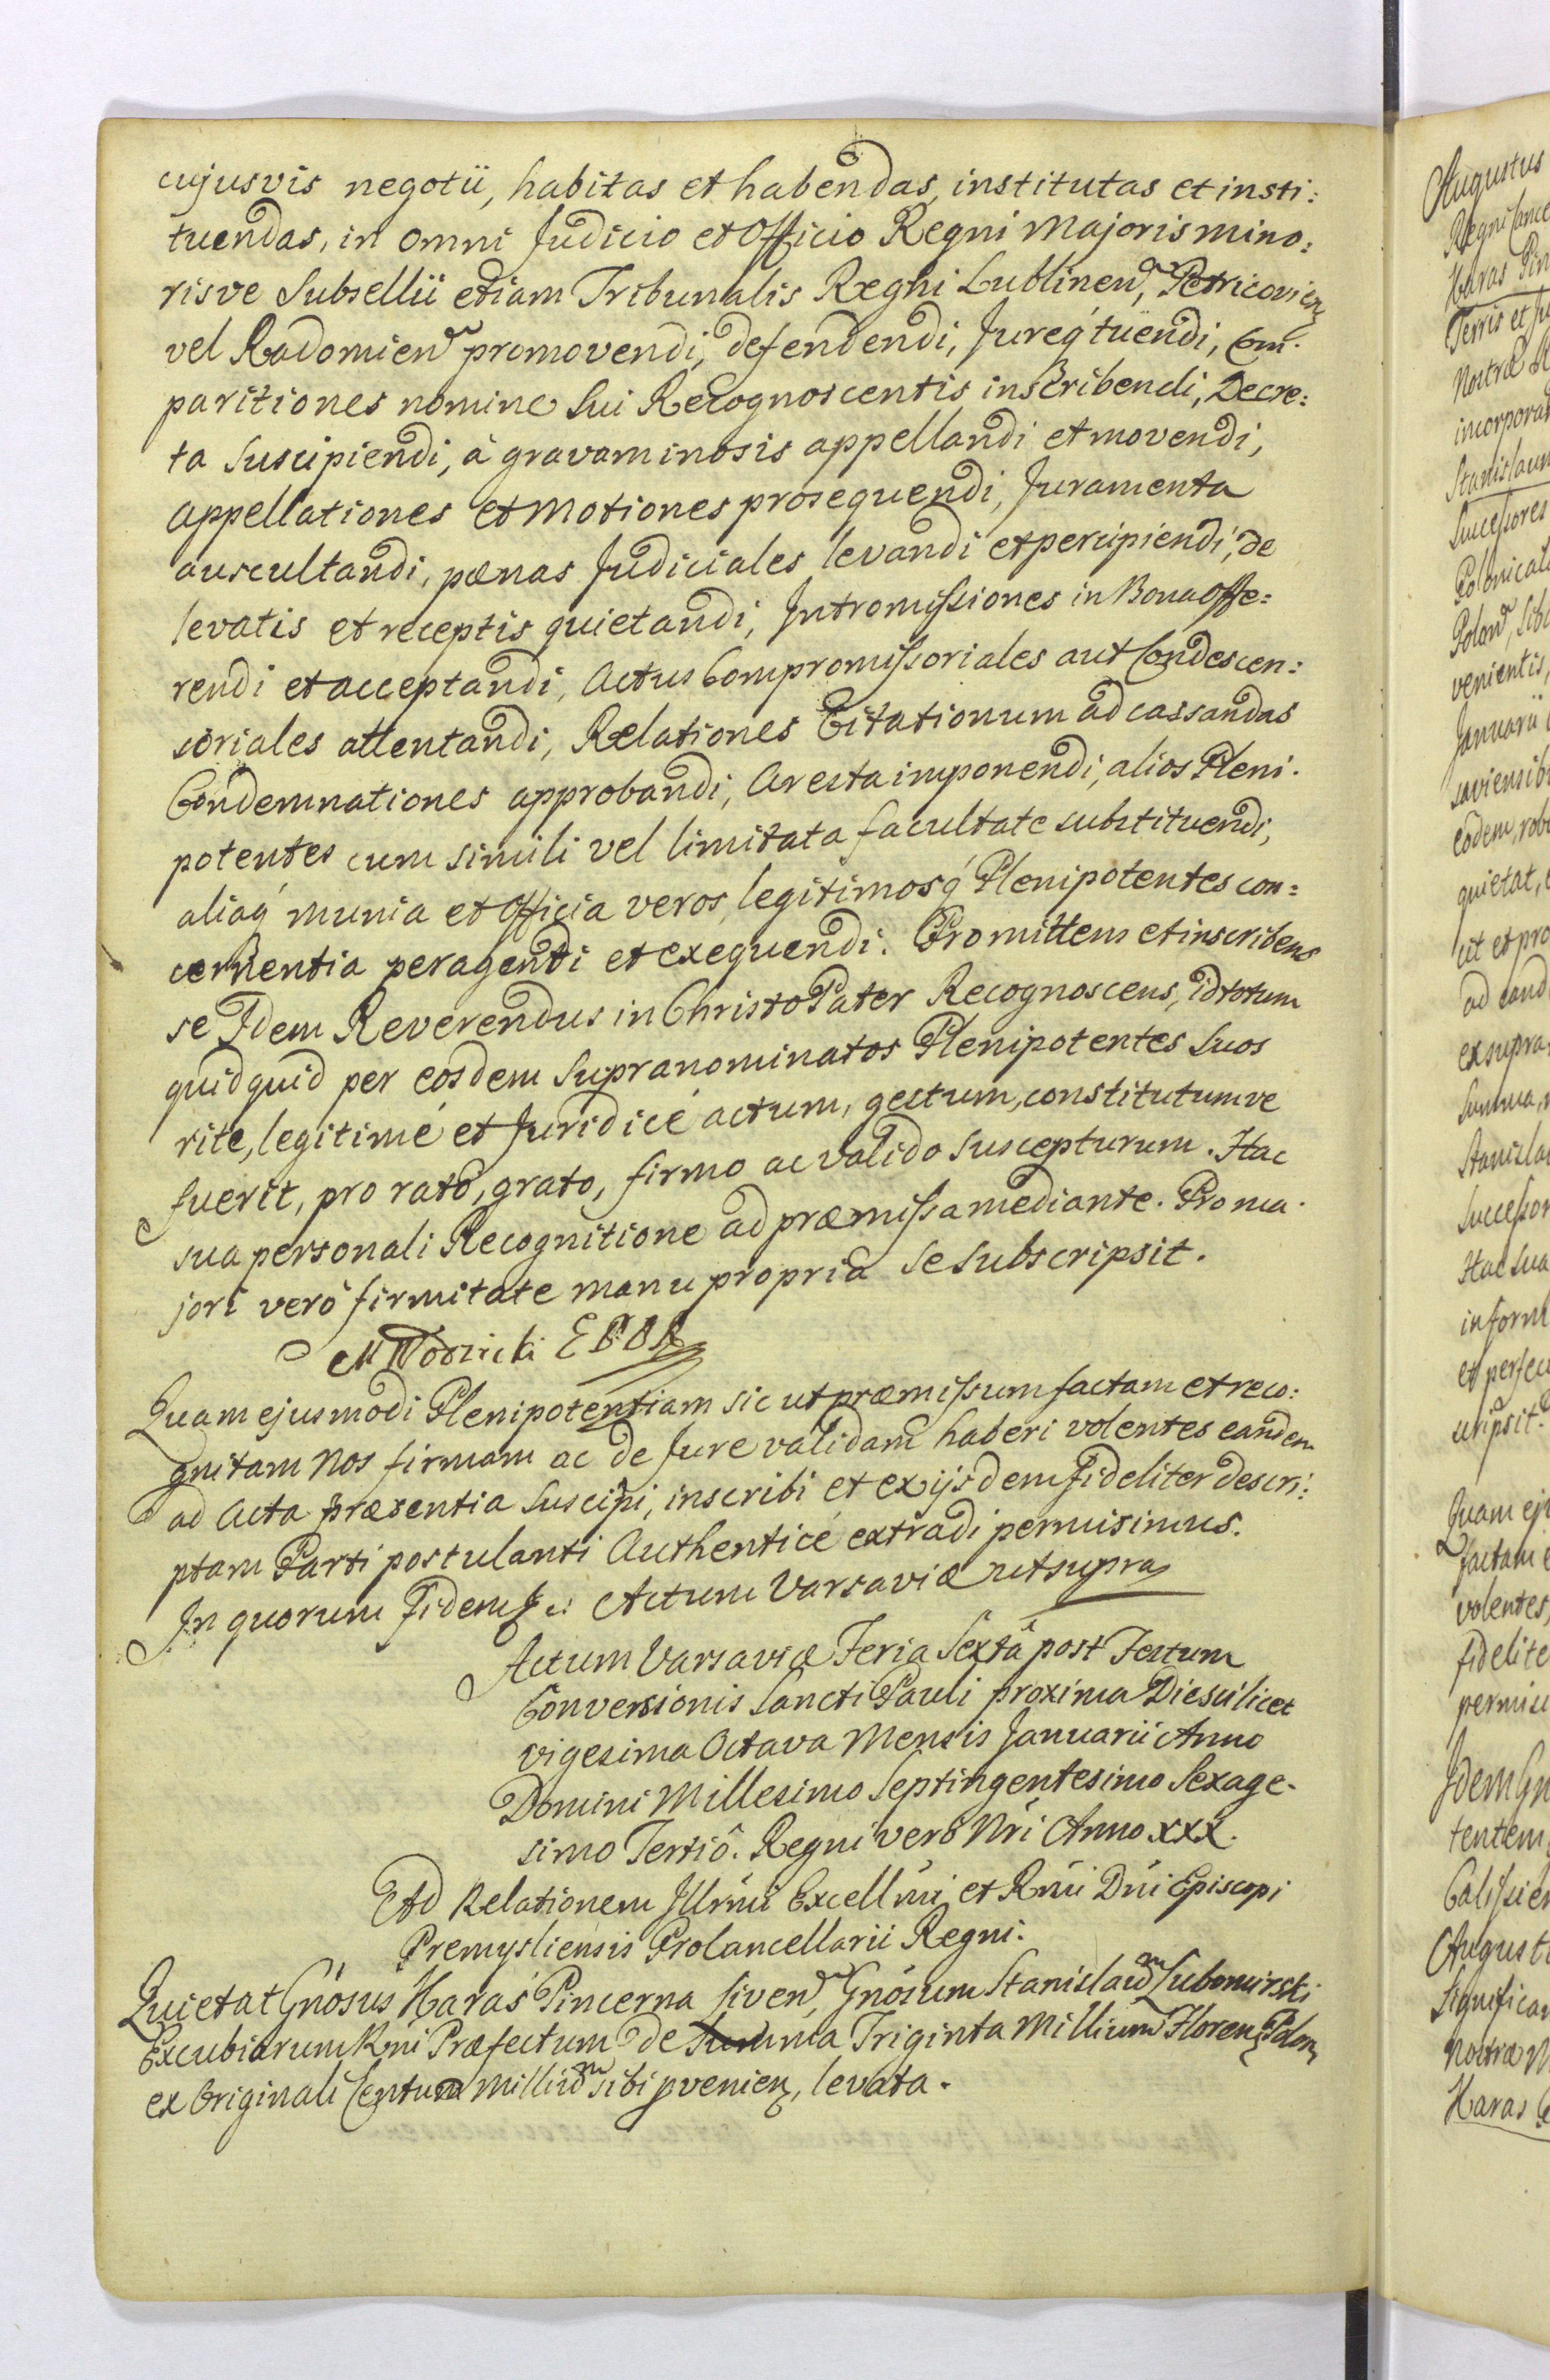 cujusvis negotii, habitas et habendas, institutas et insti:
tuendas, in omni Judicio et Officio Regni Majoris mino:
risve Subsellii etiam Tribunalis Regni Lublinen, Petricovien
vel Radomien promovendi, defendendi, Jureq́ tuendi, Com.
paritiones nomine Sui Recognoscentis inscribendi, Decre:
ta Suscipiendi, à gravaminosis appellandi et movendi,
appellationes et Motiones prosequendi, Juramenta
auscultandi, pœnas Judiciales levandi et percipiendi, de
levatis et receptis quietandi, Intromissiones in Bona offe:
rendi et acceptandi, Actus Compromissoriales aut Condescen:
soriales attentandi, Relationes Citationum ad cassandas
Condemnationes approbandi, Aresta imponendi, alios Pleni.
potentes cum simili vel limitata facultate substituendi,
aliaq́ munia et Officia veros, legitimosq́ Plenipotentes con:
cernentia peragendi et exequendi. Promittens et inscribens
se Idem Reverendus in Christo Pater Recognoscens, id totum
quidquid per eosdem Supranominatos Plenipotentes Suos
rite, legitimé et Juridicé actum, gestum, constitutumve
fuerit, pro rato, grato, firmo ac valido Suscepturum. Hac
sua personali Recognitione ad præmissa mediante. Pro ma.
jori verò firmitate manu propria Se Subscripsit.
M Wodzicki
Quam ejusmodi Plenipotentiam sic ut præmissum factam et reco:
gnitam Nos firmam ac de Jure validam haberi volentes eandem
ad Acta præsentia Suscipi, inscribi et ex ijsdem fideliter descri:
ptam Parti postulanti Authenticé extradi permisimus.
In quorum fidem Actum Varsaviæ ut supra
Actum Varsaviæ Feria Sextâ post Festum
Conversionis Sancti Pauli proxima Die scilicet
vigesima Octava Mensis Januarii Anno
Domini Millesimo Septingentesimo Sexage-
simo Tertiô. Regni verò Nri Anno XXX.
Ad Relationem Illrmi Excellmi et Rmi Dni Episcopi
Premysliensis Procancellarii Regni.
Quietat Gnosus Haras Pincerna Gnosum Stanislaum Lubomirski
Excubiarum Rni Præfectum de Summa Triginta Millium Floren Polon
ex Originali Centum Millium sibi pvenien, levata.